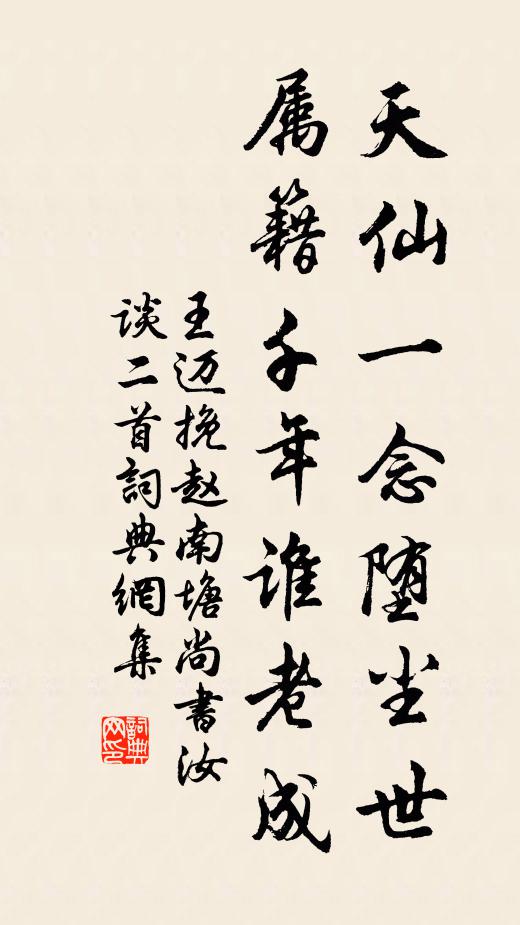 天仙一念堕尘世
属籍千年谁老成
王迈挽赵南塘尚書汝
谈二首詞典網集
詞典网印